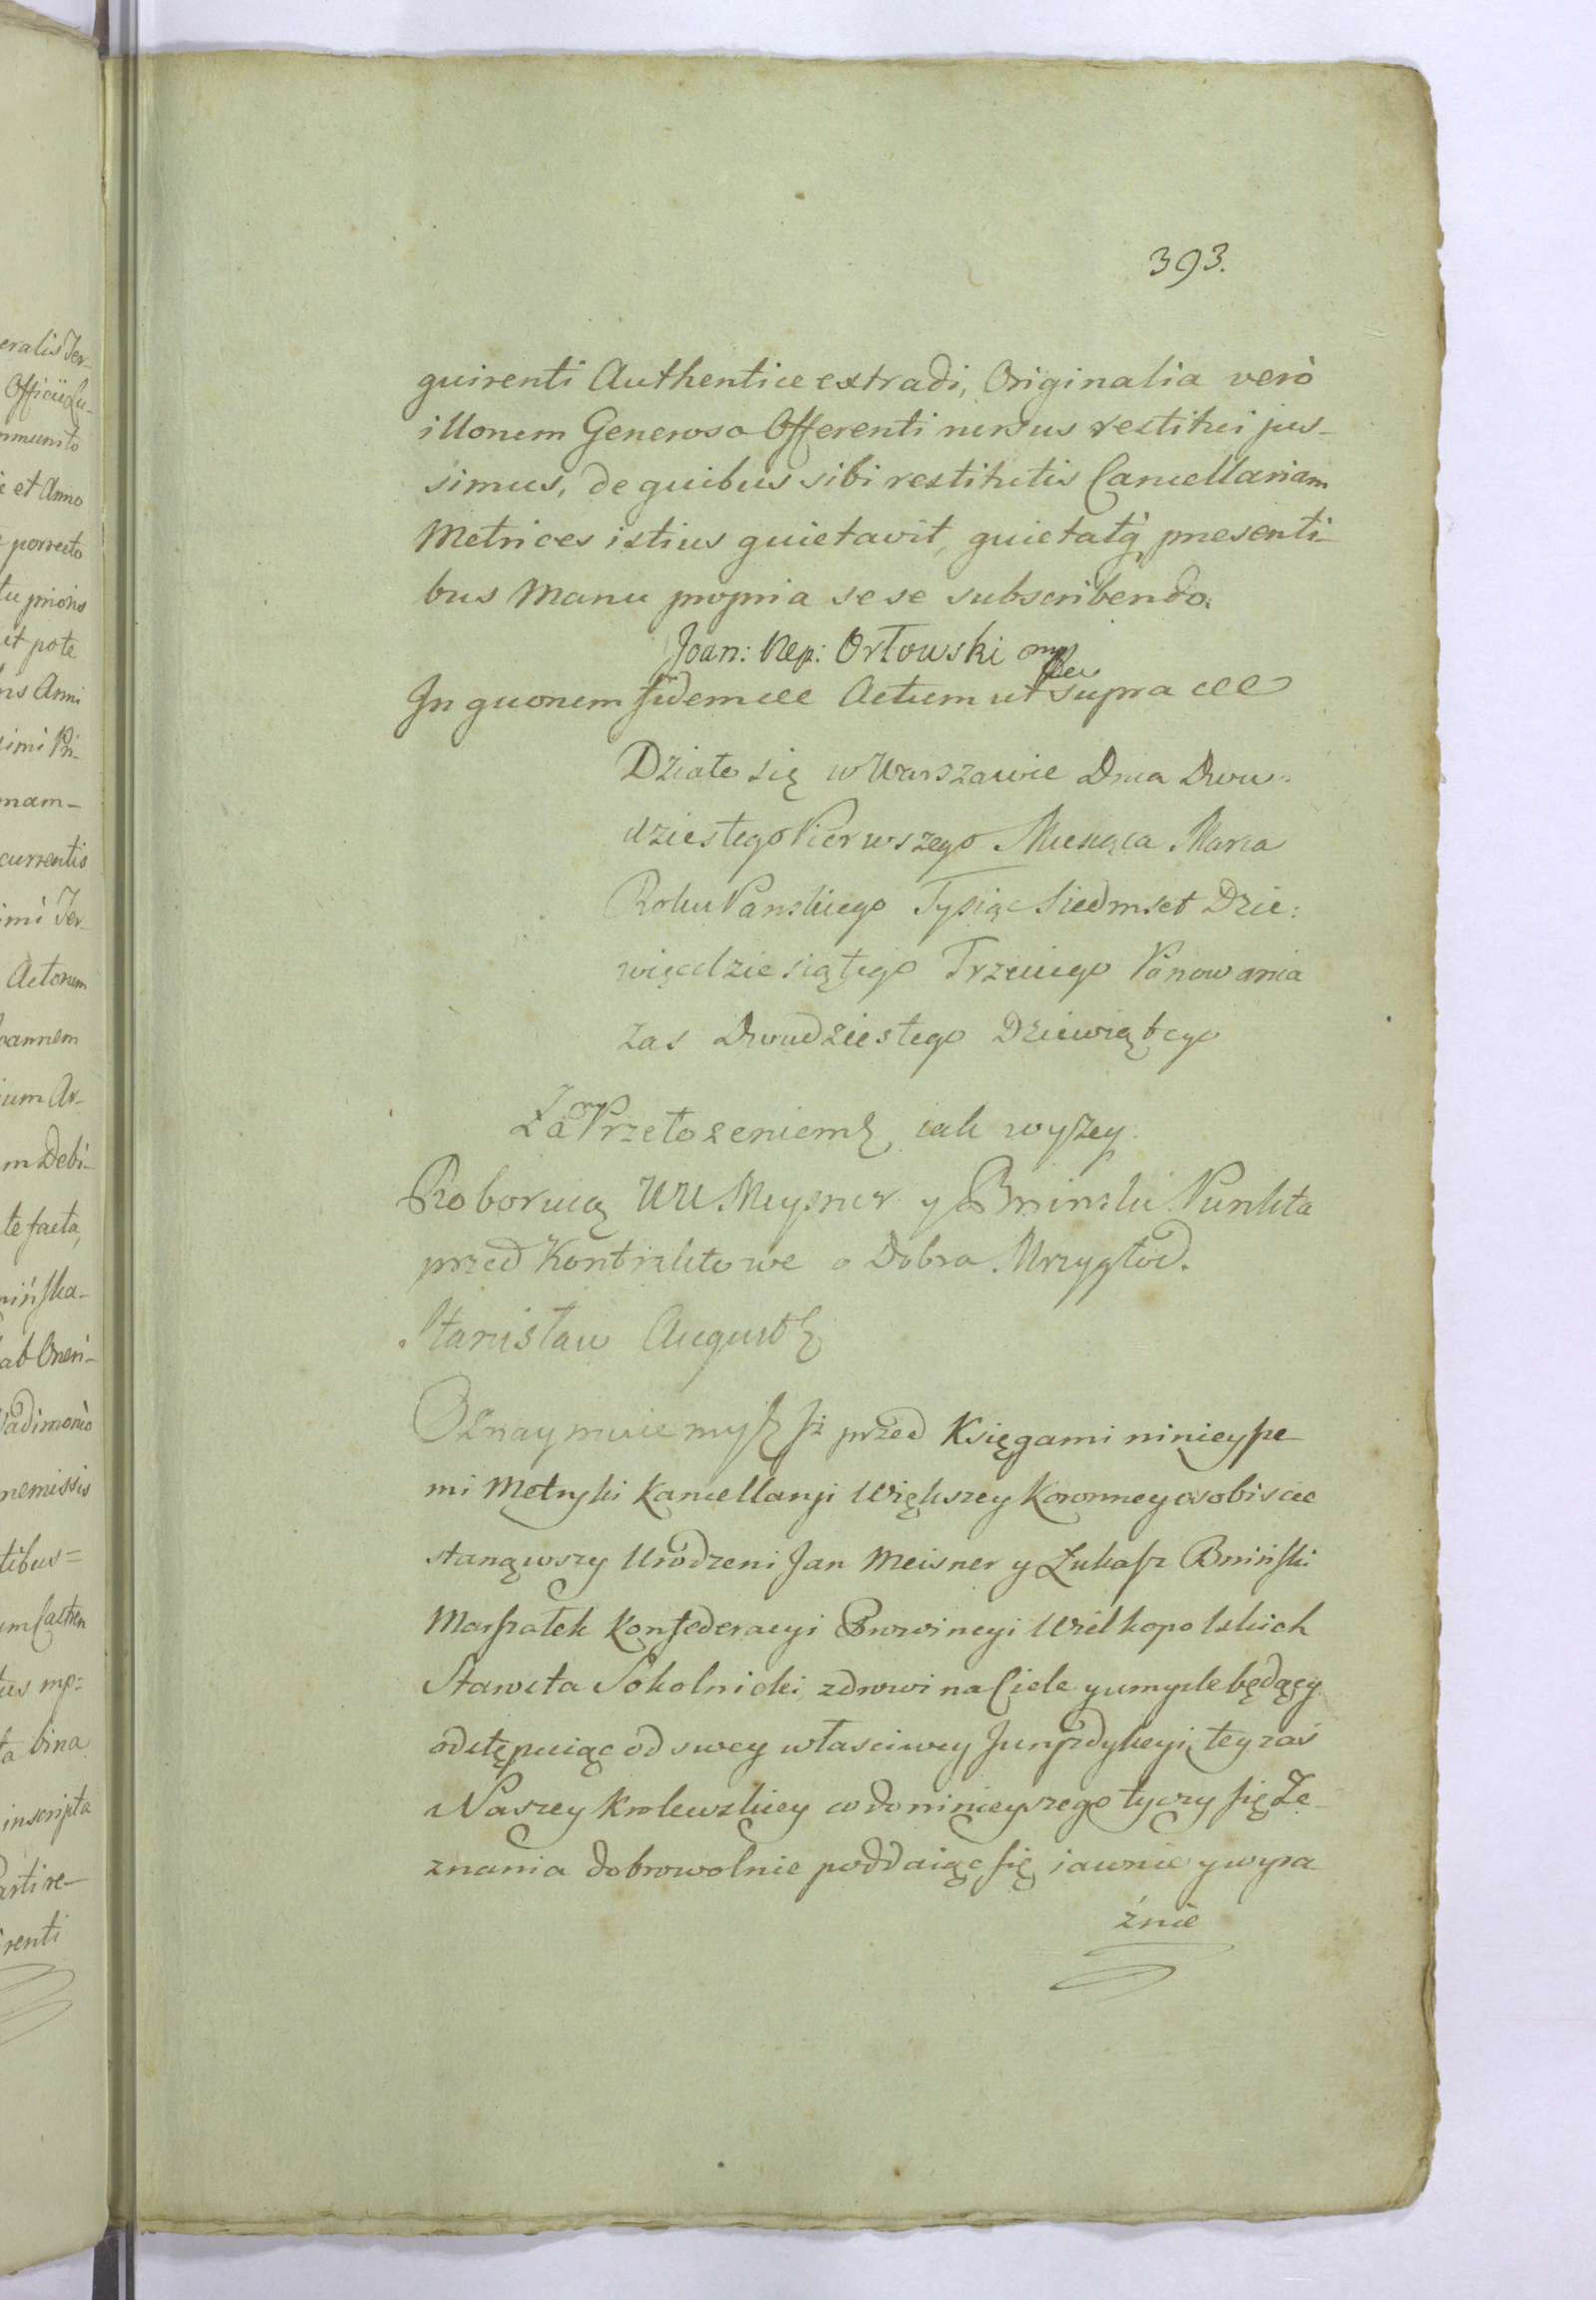 393.
quirenti Authentice extradi, Originalia verò
illorum Generoso Offerenti rursus restitui jus-
simus, de quibus sibi restitutis Cancellariam
Metrices istius quietavit, quietatq presenti-
bus Manu propria sese subscribendo.
Joan: Nep: Orłowski mp
In quorum fidem etc Actum ut supra etc
Działo się w Warszawie Dnia Dwu:
dziestego Pierwszego Miesiąca Marca
Roku Panskiego Tysiąc Siedmset Dzie:
więcdziesiątego Trzeciego Panowania
Zas Dwudziestego Dziewiątego
Za Przełożeniem iak wyżey
Roboruią UU Meysner y Bninski Punkta
przed Kontraktowe o Dobra Mrzygłod.
Stanisław August
Oznaymuiemy Iż przed Księgami ninieysze
mi Metryki Kancellaryi Większey Koronney osobiscie
stanąwszy Urodzeni Jan Meisner y Łukasz Bniński
Marszałek Konfederacyi Prowincyi Wielkopolskich
Starosta Sokolnicki zdrowi na Ciele y umyśle będący
odstępuiąc od swey własciwey Juryzdykcyi, tey zaś
Naszey Krolewskiey co do ninieyszego tyczy się Ze
znania dobrowolnie poddaiąc się iawnie y wyra
źnie
eralis Ter-
Officii Lu-
et Anno
porrecto
prioris
ut pote
Anni
nam-
currentis
Ter-
Actorum
oannem
um Ar-
m Debi-
te facta,
nińska-
ab Oneri-
Vadimonio
remissis
tibus=
um Castren
mp=
bina
inscripta
Parti re-
renti